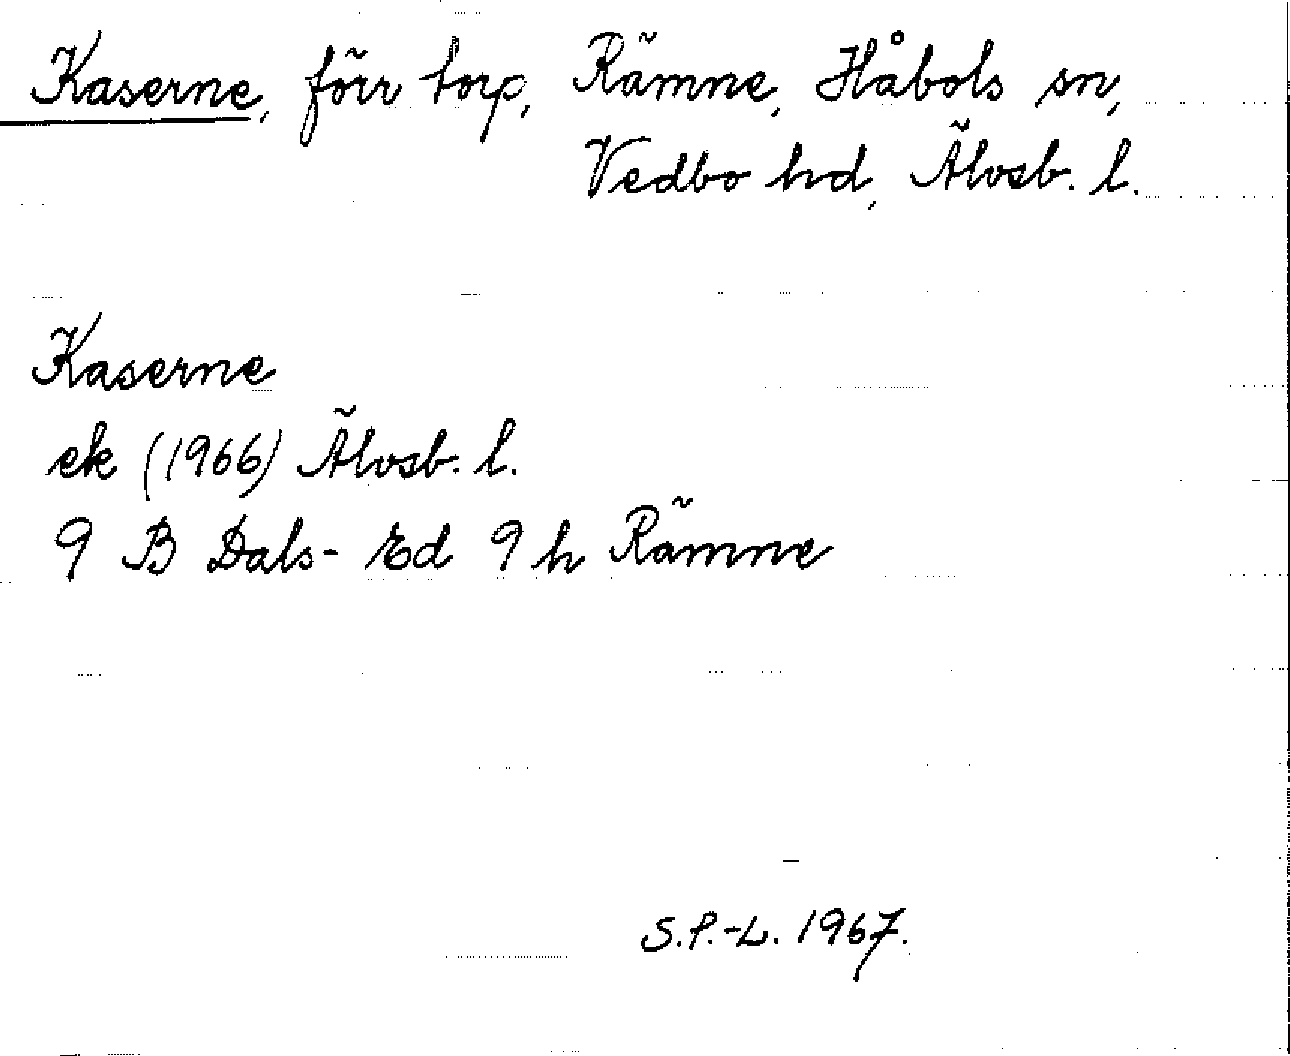 Kaserne, förr torp, Rämne, Håbols sn,
Vedbo hd, Älvsb. l.
Kaserne
ek (1966) Älvsb. l.
9 B Dals-Ed 9 h Rämne
S.P.-L. 1967.